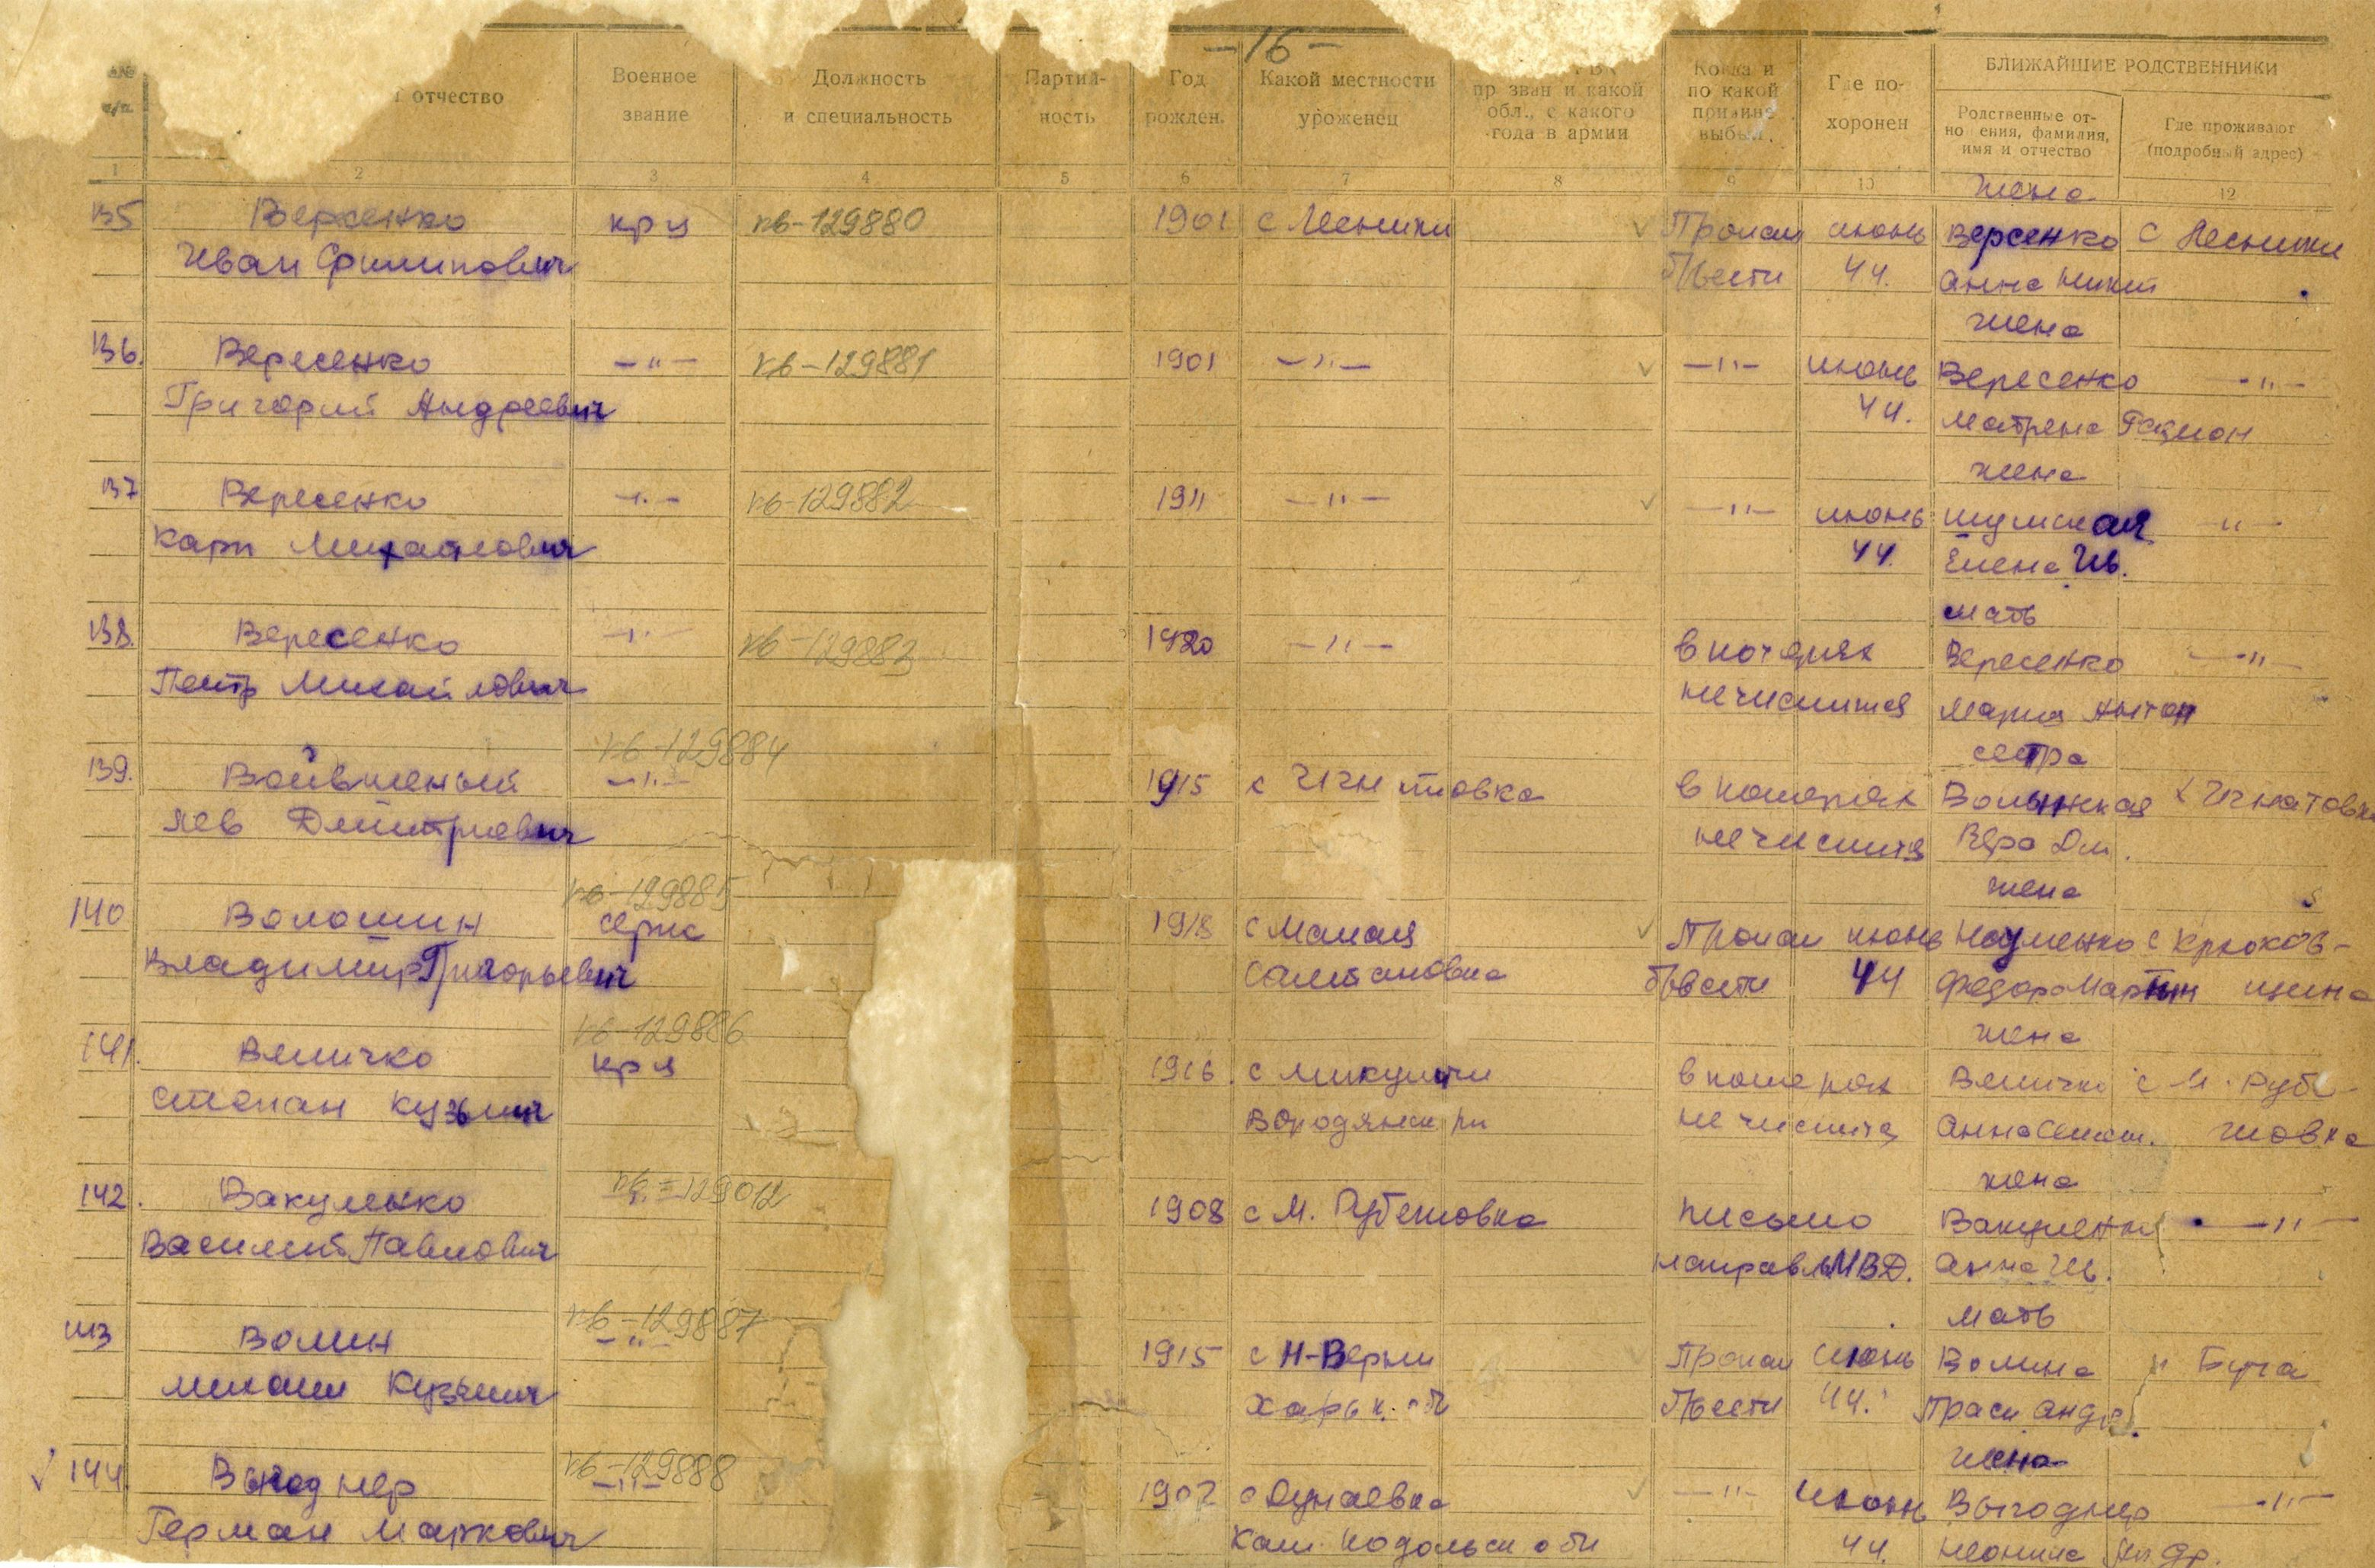 -16-
№№ п/п
отчество
Военное звание
Должность и специальность
Партий-ность
Год рожден.
Какой местности уроженец
РВК пр зван и какой обл., с какого года в армии
Когда и по какой причине выбыл.
Где по-хоронен
БЛИЖАЙШИЕ РОДСТВЕННИКИ
Родственные от-но ения, фамилия, имя и отчество
Где проживают (подробный адрес)
1 2 3 4 5 6 7 8 9 10 12
жена
135 Версенко кр-ц кв-129880 1901 с Лесники Пропал июнь Версенко с Лесники
Иван Филипович б/вести 44. Анна Никит
жена
136. Вересенко -"- кв-129881 1901 -"- -"- июнь Вересенко -"-
Григорий Андреевич 44. Матрена Родион
жена
137 Вересенко -"- кв-129882 1911 -"- -"- июнь Шумская -"-
Карп Михайлович 44. Елена Ив.
мать
138. Вересенко -"- кв-129883 1920 -"- в потерях Вересенко -"-
Петр Михайлович не числится Мария Антон
кв-129884 сестра
139. -"- 1915 с Игнатовка в потерях Волынская с Игнатовка
Лев Дмитриевич не числится Вера Дм.
кв-129885 жена
140 Волошин серж 1918 с Малая Пропал июнь Науменко с Крюков-
Владимир Григорьевич Салтановка б/вести 44 Федора Мартын щина
кв-129886 жена
141. Величко кр-ц 1916. с Микуличи в потерях Величко с М. Рубе-
Степан Кузьмич Бородянск рн не числится Анна жовка
кв-129012 жена
142. Вакуленко -"- 1908 с М. Рубежовка письмо Вакуленко -"-
Василий Павлович направл МВД. Анна Ив.
кв-129887 мать
143 Волин -"- 1915 с Н-Верки Пропал июнь Волина п Буча
Михаил Кузьмич Харьк. обл б/вести 44. Праск Андр.
кв-129888 жена
144. Выгоднер -"- 1907 с Дунаевка -"- июнь Выгоднер -"-
Герман Маркович Кам. Подольск обл 44.